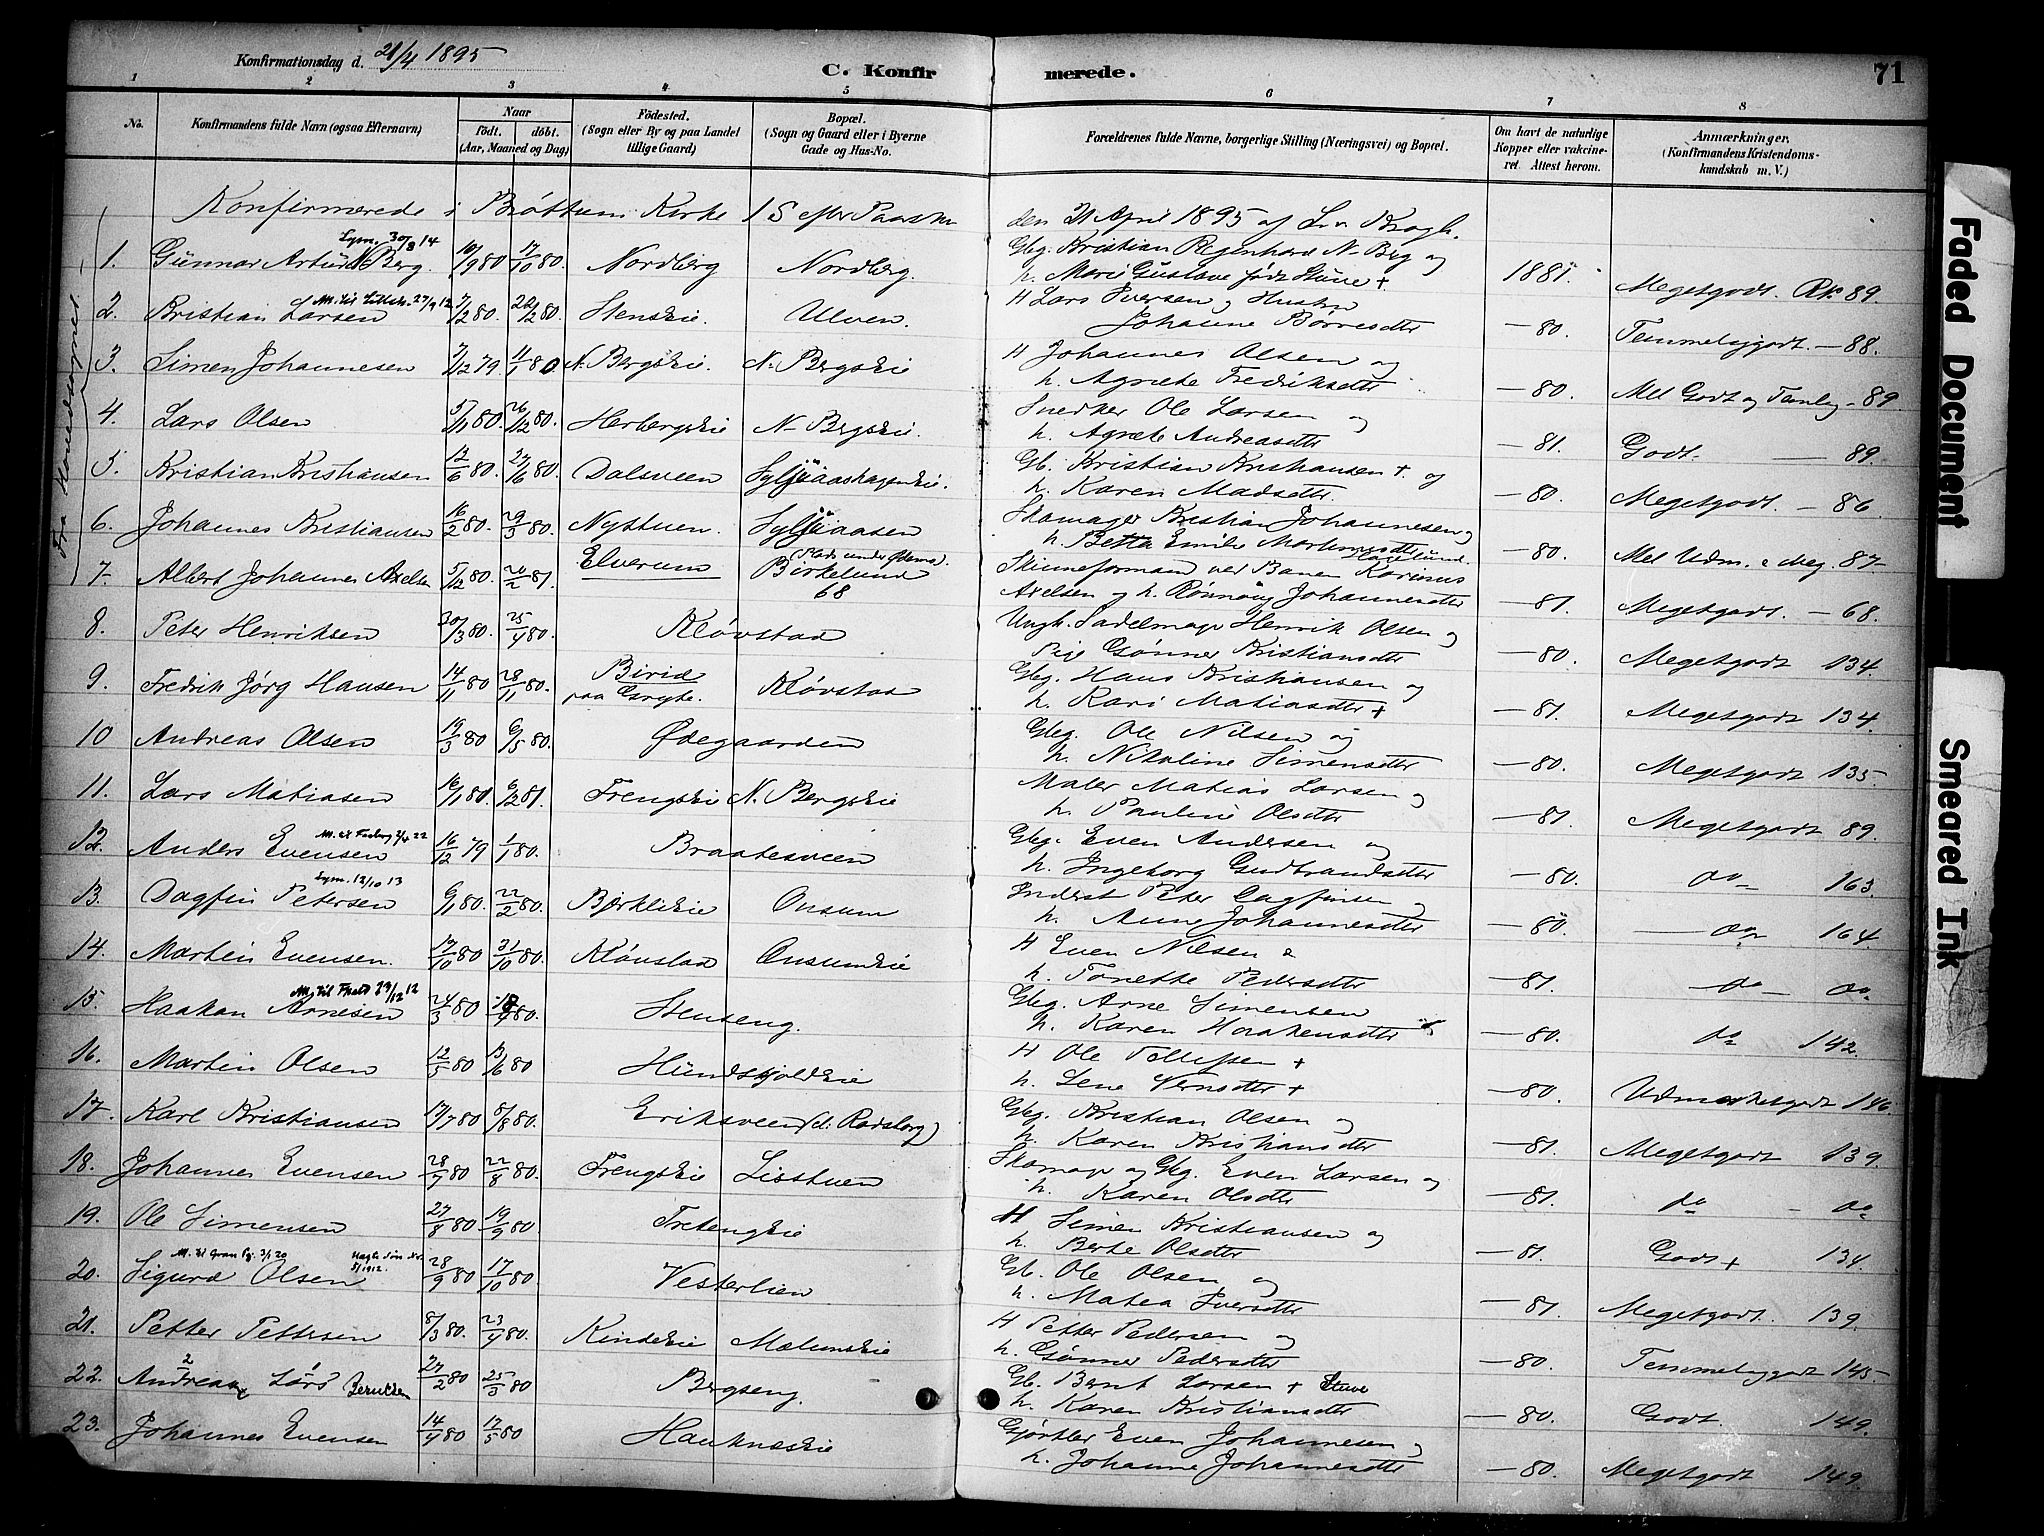 Konfirmationsdag d. 21/4 1895
C. Konfirmerede.
71
1 2 3 4 5 6 7 8
No.
Konfirmandens fulde Navn (ogsaa Efternavn)
Naar
födt. döbt.
(Aar, Maaned og Dag)
Födested.
(Sogn eller By og paa Landet
tillige Gaard)
Bopæl.
(Sogn og Gaard eller i Byerne
Gade og Hus-No.
Forældrenes fulde Navne, borgerlige Stilling (Næringsvei) og Bopæl.
Om havt de naturlige
Kopper eller vakcine-
ret. Attest herom.
Anmærkninger.
(Konfirmandens Kristendoms-
kundskab m. V.)
Konfirmerede i Brøttum Kirke 1 S efter Paaske den 21 April 1895 af Krogh.
Fra Hovedsognet
1. Gunnar Artur N. Berg. 10/9 80 17/10 80. Nordberg Nordberg. Gbg. Kristian Regenhard N-Berg og
h. Marie Gustave født Stuve + 1881. Megetgodt. Rk. 89.
2. Kristian Larsen M. til Lilleh. 27/9 12 7/2 80 22/2 80. Stenskie. Ulven. H Lars Iversen og Hustru
Johanne Børresdtr — 80. Temmeliggodt. — 88.
3. Simen Johannesen 7/12 79 11/1 80 N. Bergskie. N. Bergskie H Johannes Olsen og
h. Agnete Fredriksdtr — 80. Mel Godt og Temlig — 89.
4. Lars Olsen 5/11 80. 26/12 80. Herbergskie N- Bergskie. Snedker Ole Larsen og
h. Agnete Andreasdtr — 81. Godt — 89.
5. Kristian Kristiansen 12/6 80. 27/6 80. Dalsveen Syljuaashagenskie. Gb. Kristian Kristiansen + og
h. Karen Madsdtr. — 80. Megetgodt. — 86.
6. Johannes Kristiansen 16/2 80. 29/3 80. Nystuen. Syljuaasen Skomager Kristian Johannesen og
h. Betta Emilie Martinusdtr — 80. Mel Udm. & Meg. 87
7- Albert Johannes Axelsen 5/12 80. 20/2 81. Elverum Birkelund 68 Skinneformand ved Banen Karinus
Axelsen og h. Rønnaug Johannesdtr — 81. Megetgodt. — 68.
8. Peter Henriksen 30/3 80. 25/4 80. Kløvstad Ungk. Sadelmager Henrik Olsen og
Pige Gønner Kristiansdtr — 80. Megetgodt 134.
9. Fredrik Jørg Hansen 14/11 80 28/11 80. Birid Kløvstad Gbg. Hans Kristiansen og
h. Kari Matiasdtr + — 81. Megetgodt 134.
10 Andreas Olsen 19/3 80 6/5 80. Ødegaarden Gbg. Ole Nilsen og
h. Nikoline Simensdtr — 80. Megetgodt 135
11. Lars Matiasen 16/11 80. 6/2 81. Frengskie N. Bergskie Maler Matias Larsen og
h. Pauline Olsdtr — 81. Megetgodt 89.
12. Anders Evensen M. til Faaberg 22 16/12 79 1/1 80. Braatesveen Gbg. Even Andersen og
h. Ingeborg Gudbrandsdtr — 80. do 163.
13. Dagfin Petersen Lym. 12/10 13 6/1 80. 22/2 80. Bjørkliskie Onsum Inderst Peter Dagfinsen og
h. Anne Johannesdtr — 80. do 164
14. Martin Evensen. 17/10 80 31/10 80. Kløvstad Onsumskie H Even Nilsen &
h. Tonette Pedersdtr — 81. do — do
15. Haakon Arnesen 24/3 80 80. Stenseng. Gbg. Arne Simensen
h. Karen Haakensdtr — 80. do 142.
16. Martin Olsen 12/5 80 13/6 80 Hundskjoldskie H Ole Tollefsen +
h. Lene Iversdtr + — 80. Udmerketgodt 146.
17. Karl Kristiansen 17/7 80 8/8 80. Eriksveen (d. Rodsberg) Gbg. Kristian Olsen og
h. Karen Kristiansdtr — 81. Megetgodt 139.
18. Johannes Evensen 28/7 80 22/8 80. Frengskie Lisstuen Skomager og Gbg. Even Larsen og
h. Karen Olsdtr — 81. do - do
19. Ole Simensen 27/8 80 19/9 80. Tretengskie H Simen Kristiansen og
h. Berte Olsdtr — 81. Godt + 134.
20. Sigurd Olsen M. til Gran Pg. 3/1 20 28/9 80 17/10 80 Vesterlien Gb. Ole Olsen og
h. Matea Iversdtr — 81. Megetgodt. 139.
21. Petter Pettersen 8/3 80. 23/4 80. Kindeskie Mælumskie H Petter Pedersen og
h. Gønner Pedersdtr — 80. Temmeliggodt 145-
22. Andreas Lars Berntsen 27/2 80 25/3 80 Bergseng. Gb. Bernt Larsen + Stuve
h. Karen Kristiansdtr — 80. Godt. 149.
23. Johannes Evensen 14/4 80 17/5 80 Hauknæskie Gjørtler Even Johannesen og
h. Johanne Johannesdtr — 80. Megetgodt 149.
Faded Document
Smeared Ink